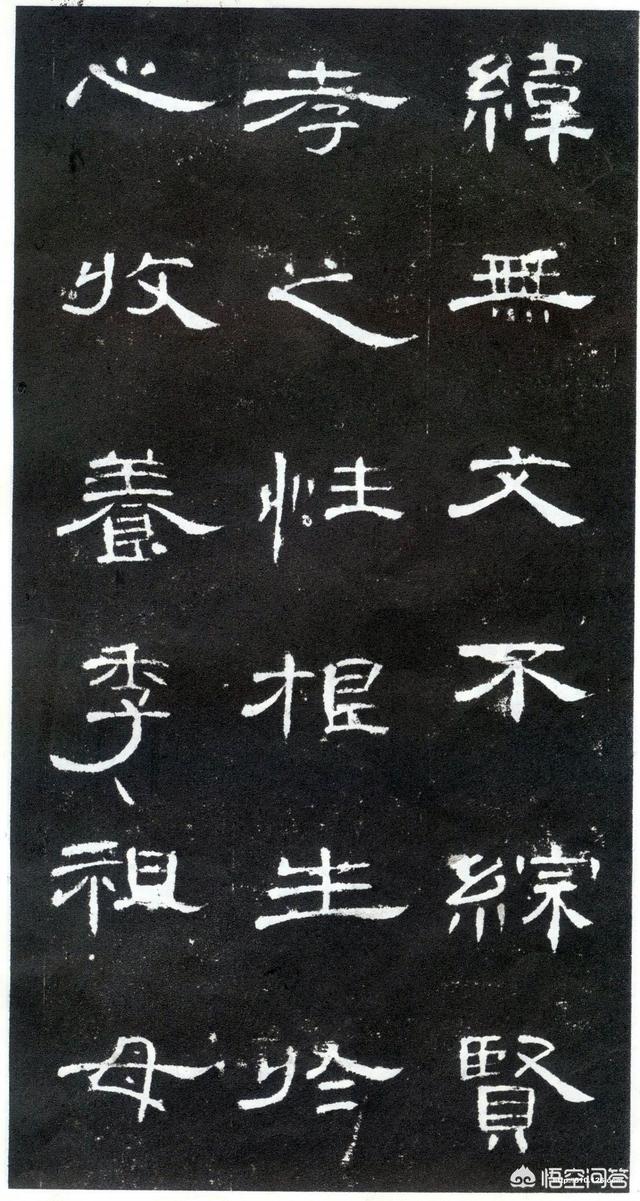 緯無文不綜賢
孝之性根生於
心收養季祖母
悟空问答